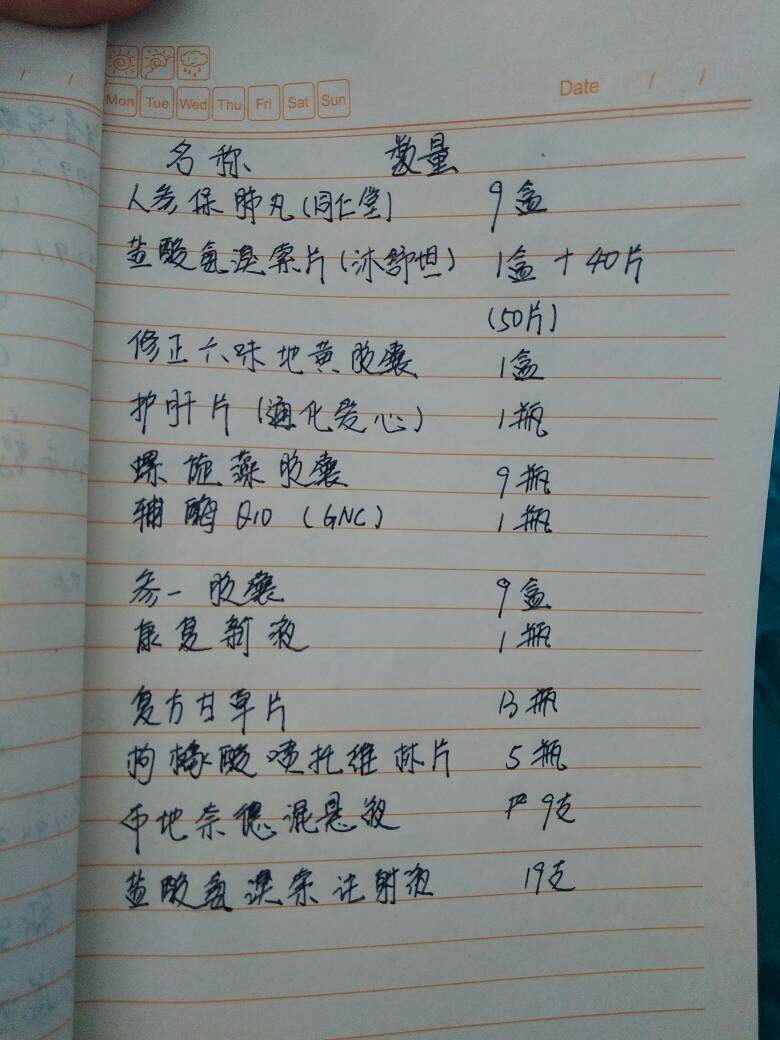 Mon Tue Wed Thu Fri Sat Sun
Date / /
名称 数量
人参保肺丸(同仁堂) 9盒
盐酸氨溴索片(沐舒坦) 1盒+40片
(50片)
修正六味地黄胶囊 1盒
护肝片(通化爱心) 1瓶
螺旋藻胶囊 9瓶
辅酶Q10(GNC) 1瓶
参一胶囊 9盒
康复新液 1瓶
复方甘草片 13瓶
枸橼酸喷托维林片 5瓶
布地奈德混悬液 9支
盐酸氨溴索注射液 19支